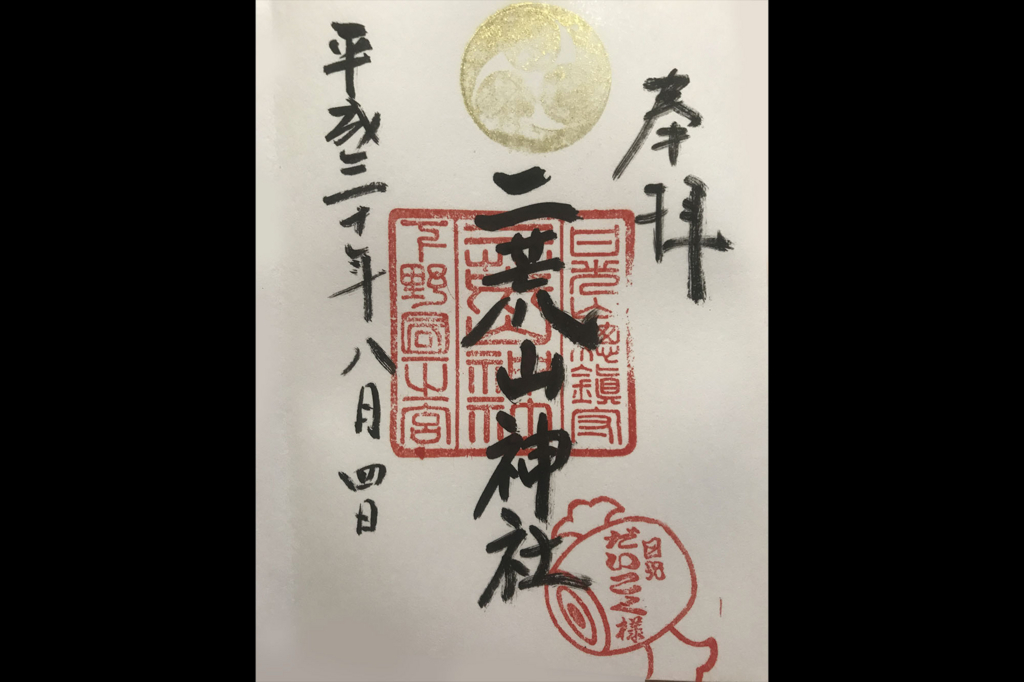 奉拝
二荒山神社
平成三十年八月四日
日光總鎮守
二荒山神社
下野國一之宮
日光
だいこく様